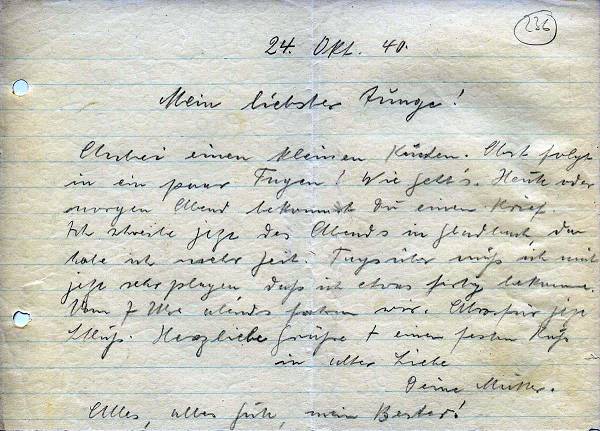 236
24. Okt. 40.
Mein liebster Junge!
Anbei einen kleinen Kuchen. Obst folgt
in ein paar Tagen! Wie geht's. Heute oder
morgen Abend bekommst Du einen Brief.
Ich schreibe jetzt des Abends in Gladbach, da
habe ich mehr Zeit. Tagsüber muß ich mich
jetzt sehr plagen daß ich etwas fertig bekomme.
Um 7 Uhr abends fahren wir. Also für jetzt
Schluß. Herzliche Grüße + einen festen Kuß
in alter Liebe
Deine Mutter.
Alles, alles Gute, mein Bester!